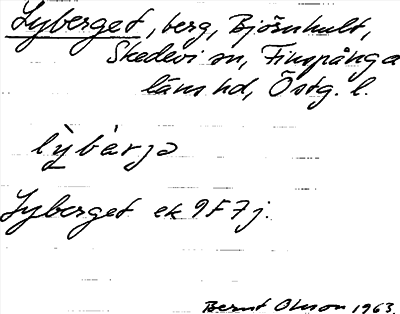 Lyberget, berg, Björnhult,
Skedevi sn, Finspånga
läns hd, Östg. l.
lỳbàrja
Lyberget ek 9F7j.
Bernt Olsson 1963.